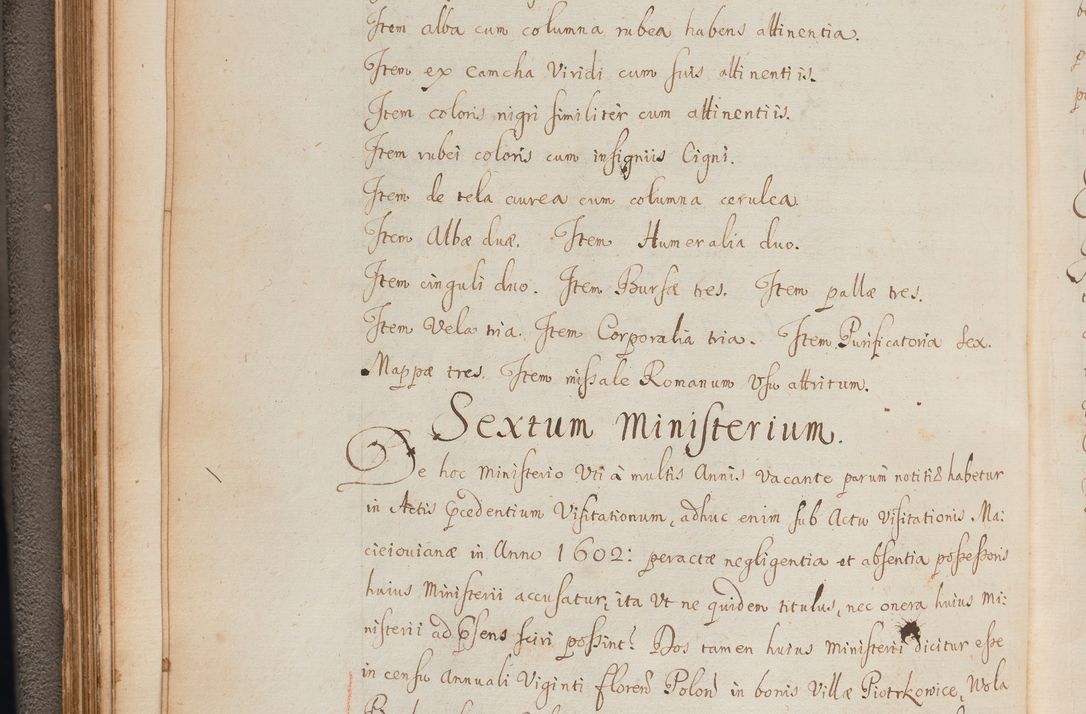 Item alba cum columna rubea habens attinentia.
Item ex camcha Viridi cum suis attinentiis.
Item coloris nigri similiter cum attinentiis.
Item rubei coloris cum insigniis Cigni.
Item de tela aurea cum columna cerulea
Item Albæ duæ. Item Humeralia duo.
Item cinguli duo. Item Bursæ tres. Item pallæ tres.
Item Vela tria. Item Corporalia tria. Item Purificatoria sex.
Mappæ tres. Item missale Romanum Vsu attritum.
Sextum Ministerium.
De hoc Ministerio Vti à multis Annis Vacante parum notitiæ habetur
in Actis pcedentium Visitationum, adhuc enim sub Actu Visitationis Ma:
cieiovianæ in Anno 1602: peractæ negligentia et absentia possessoris
huius Ministerii accusatur, ita Vt ne quidem titulus, nec onera huius Mi:
nisterii ad psens sciri possint. Dos tamen huius Ministerii dicitur esse
in censu Annuali Viginti floren Polon in bonis Villæ Piotrkowice, Wola